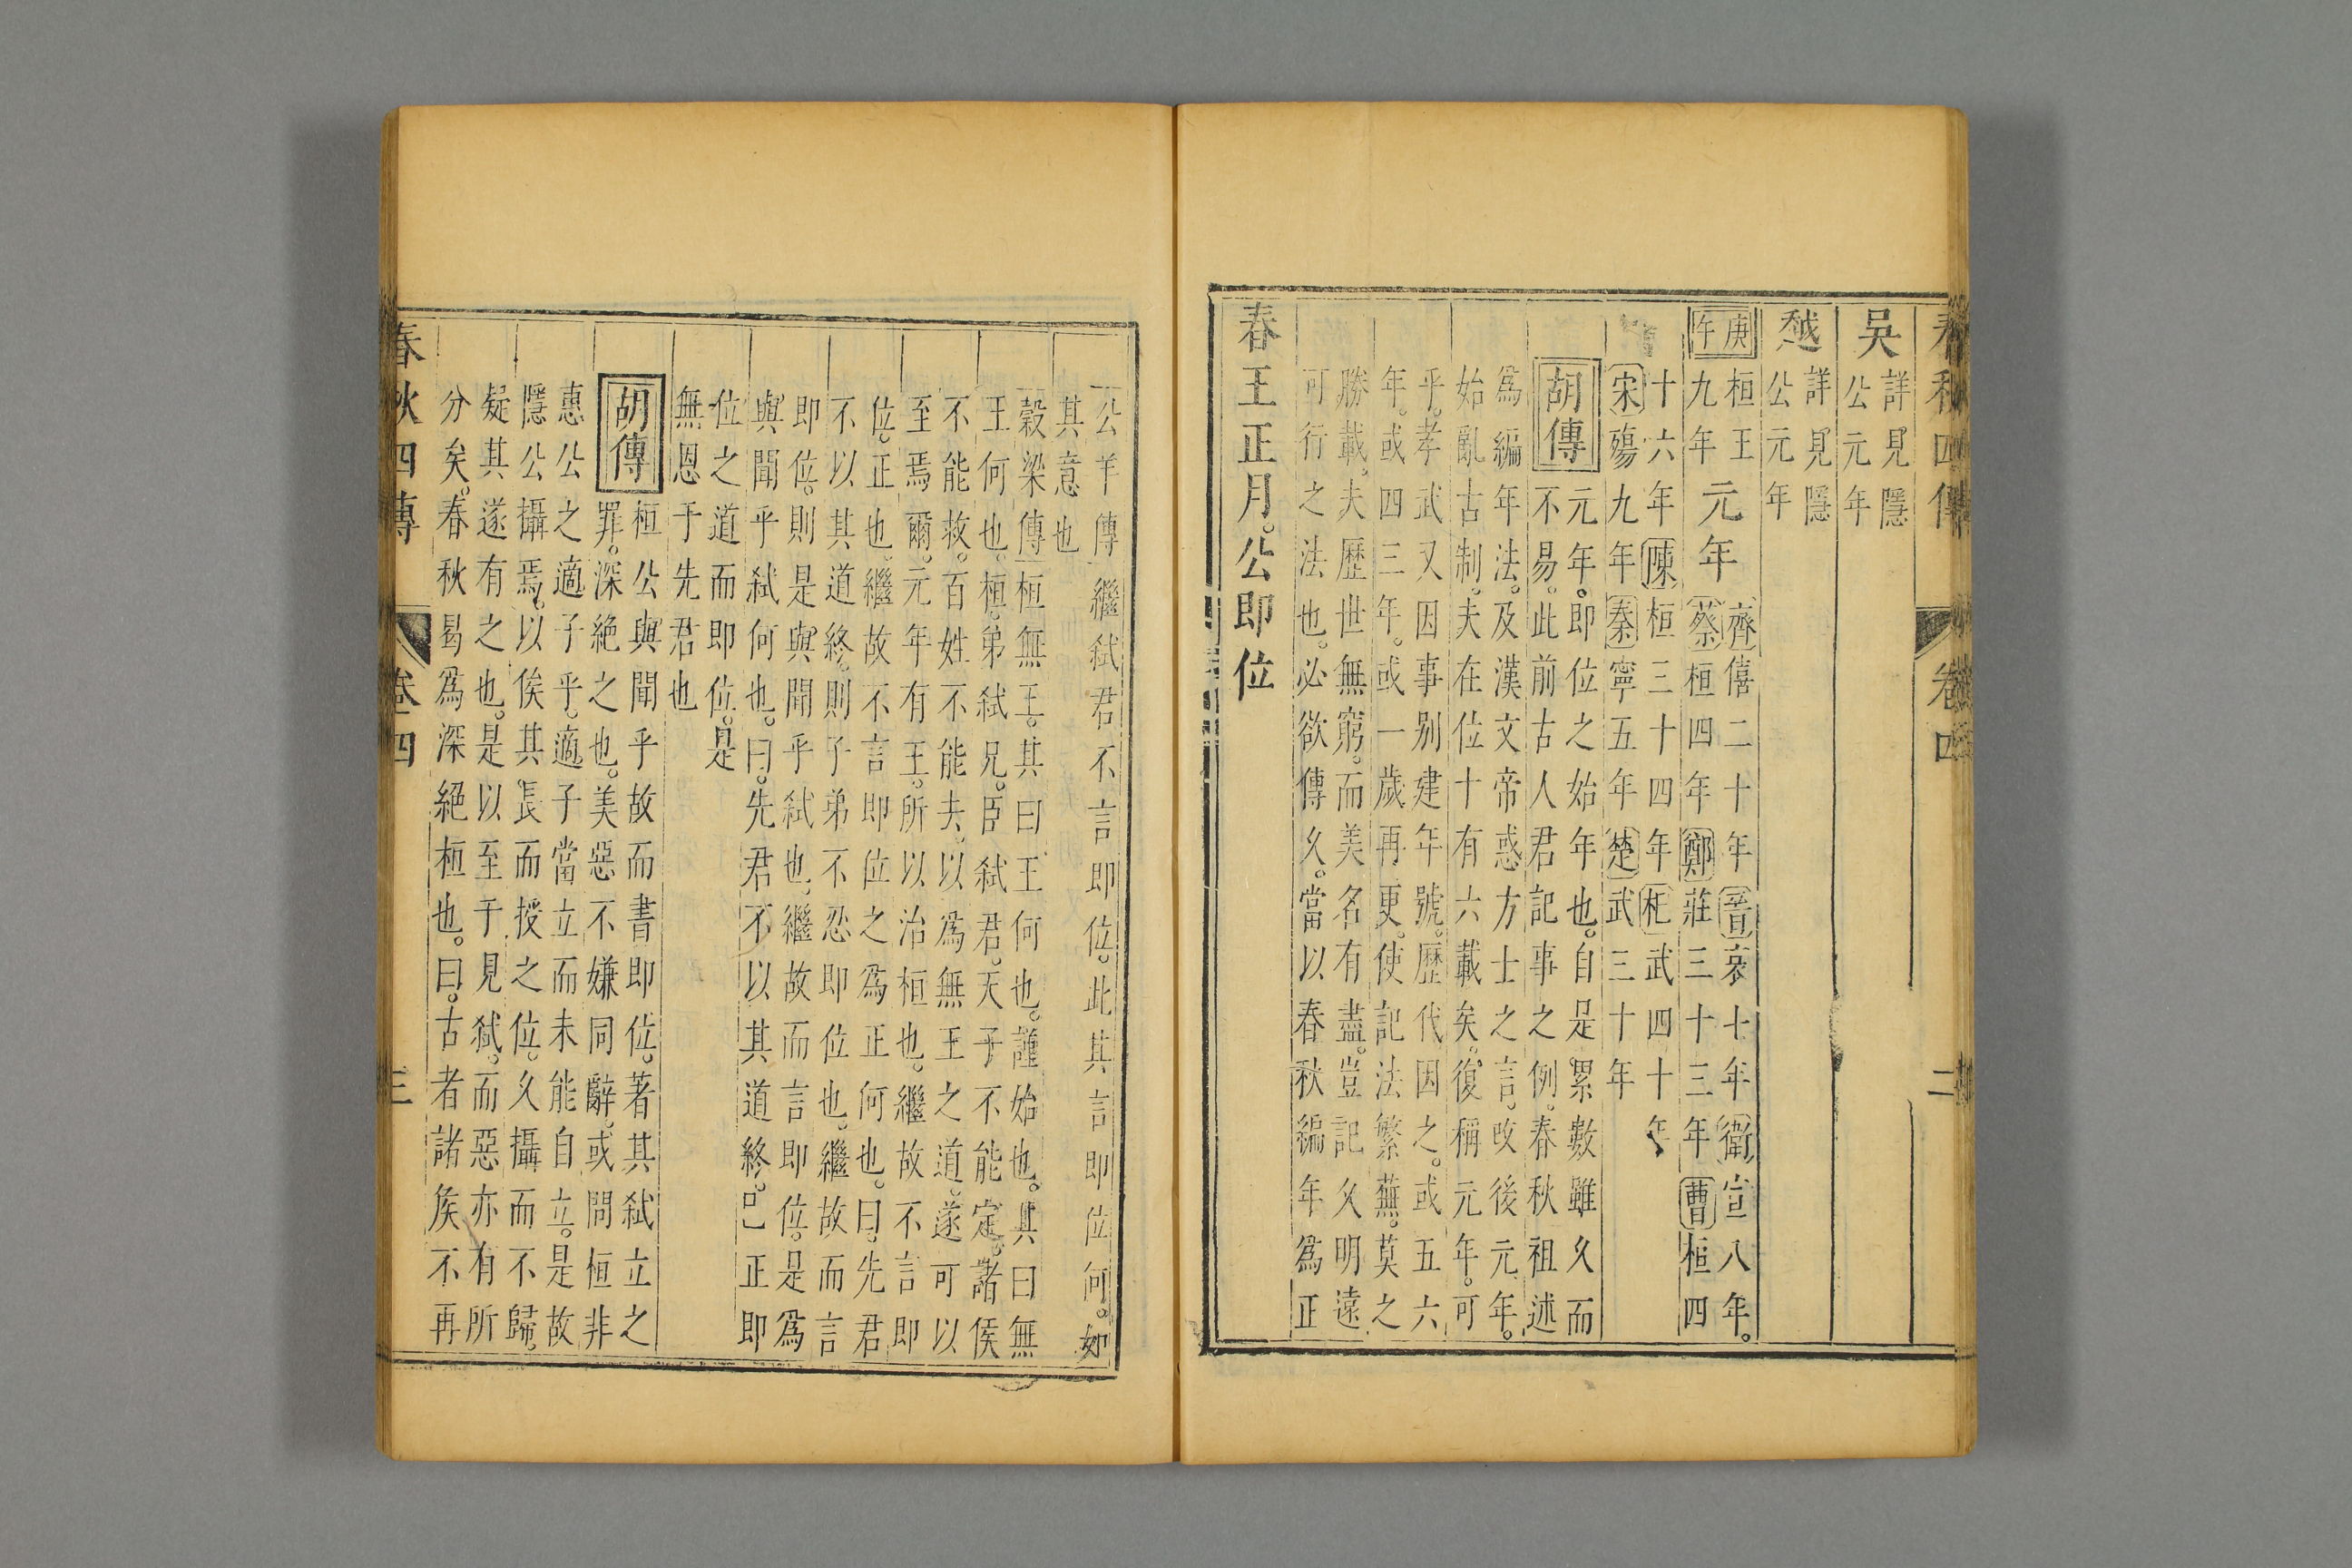 春秋四傳 卷四 二
吳
詳見隱
公元年
越
詳見隱
公元年
庚午
桓王
九年
元年
齊僖二十年晉哀七年衛宣八年。
蔡桓四年鄭莊三十三年曹桓四
十六年陳桓三十四年杞武四十年
宋殤九年秦寧五年楚武三十年
胡傳
元年。即位之始年也。自是累數雖久而
不易。此前古人君記事之例。春秋祖述
爲編年法。及漢文帝惑方士之言。改後元年。
始亂古制。夫在位十有六載矣。復稱元年。可
乎。孝武又因事别建年號。歷代因之。或五六
年。或四三年。或一歲再更。使記法繁蕪。莫之
勝載。夫歷世無窮。而美名有盡。豈記久明遠
可行之法也。必欲傳久。當以春秋編年爲正
春王正月。公即位
公羊傳 繼弑君不言即位。此其言即位何。如
其意也
穀梁傳 桓無王。其曰王何也。謹始也。其曰無
王何也。桓。弟弑兄。臣弑君。天子不能定。諸侯
不能救。百姓不能去。以爲無王之道。遂可以
至焉爾。元年有王。所以治桓也。繼故不言即
位。正也。繼故不言即位之爲正何也。曰。先君
不以其道終。則子弟不忍即位也。繼故而言
即位。則是與聞乎弑也。繼故而言即位。是爲
與聞乎弑何也。曰。先君不以其道終。已正即
位之道而即位。是
無恩于先君也
胡傳
桓公與聞乎故而書即位。著其弑立之
罪。深絕之也。美惡不嫌同辭。或問桓非
惠公之適子乎。適子當立而未能自立。是故
隱公攝焉。以俟其長而授之位。久攝而不歸。
疑其遂有之也。是以至于見弑。而惡亦有所
分矣。春秋曷爲深絕桓也。曰。古者諸侯不再
春秋四傳 卷四 三